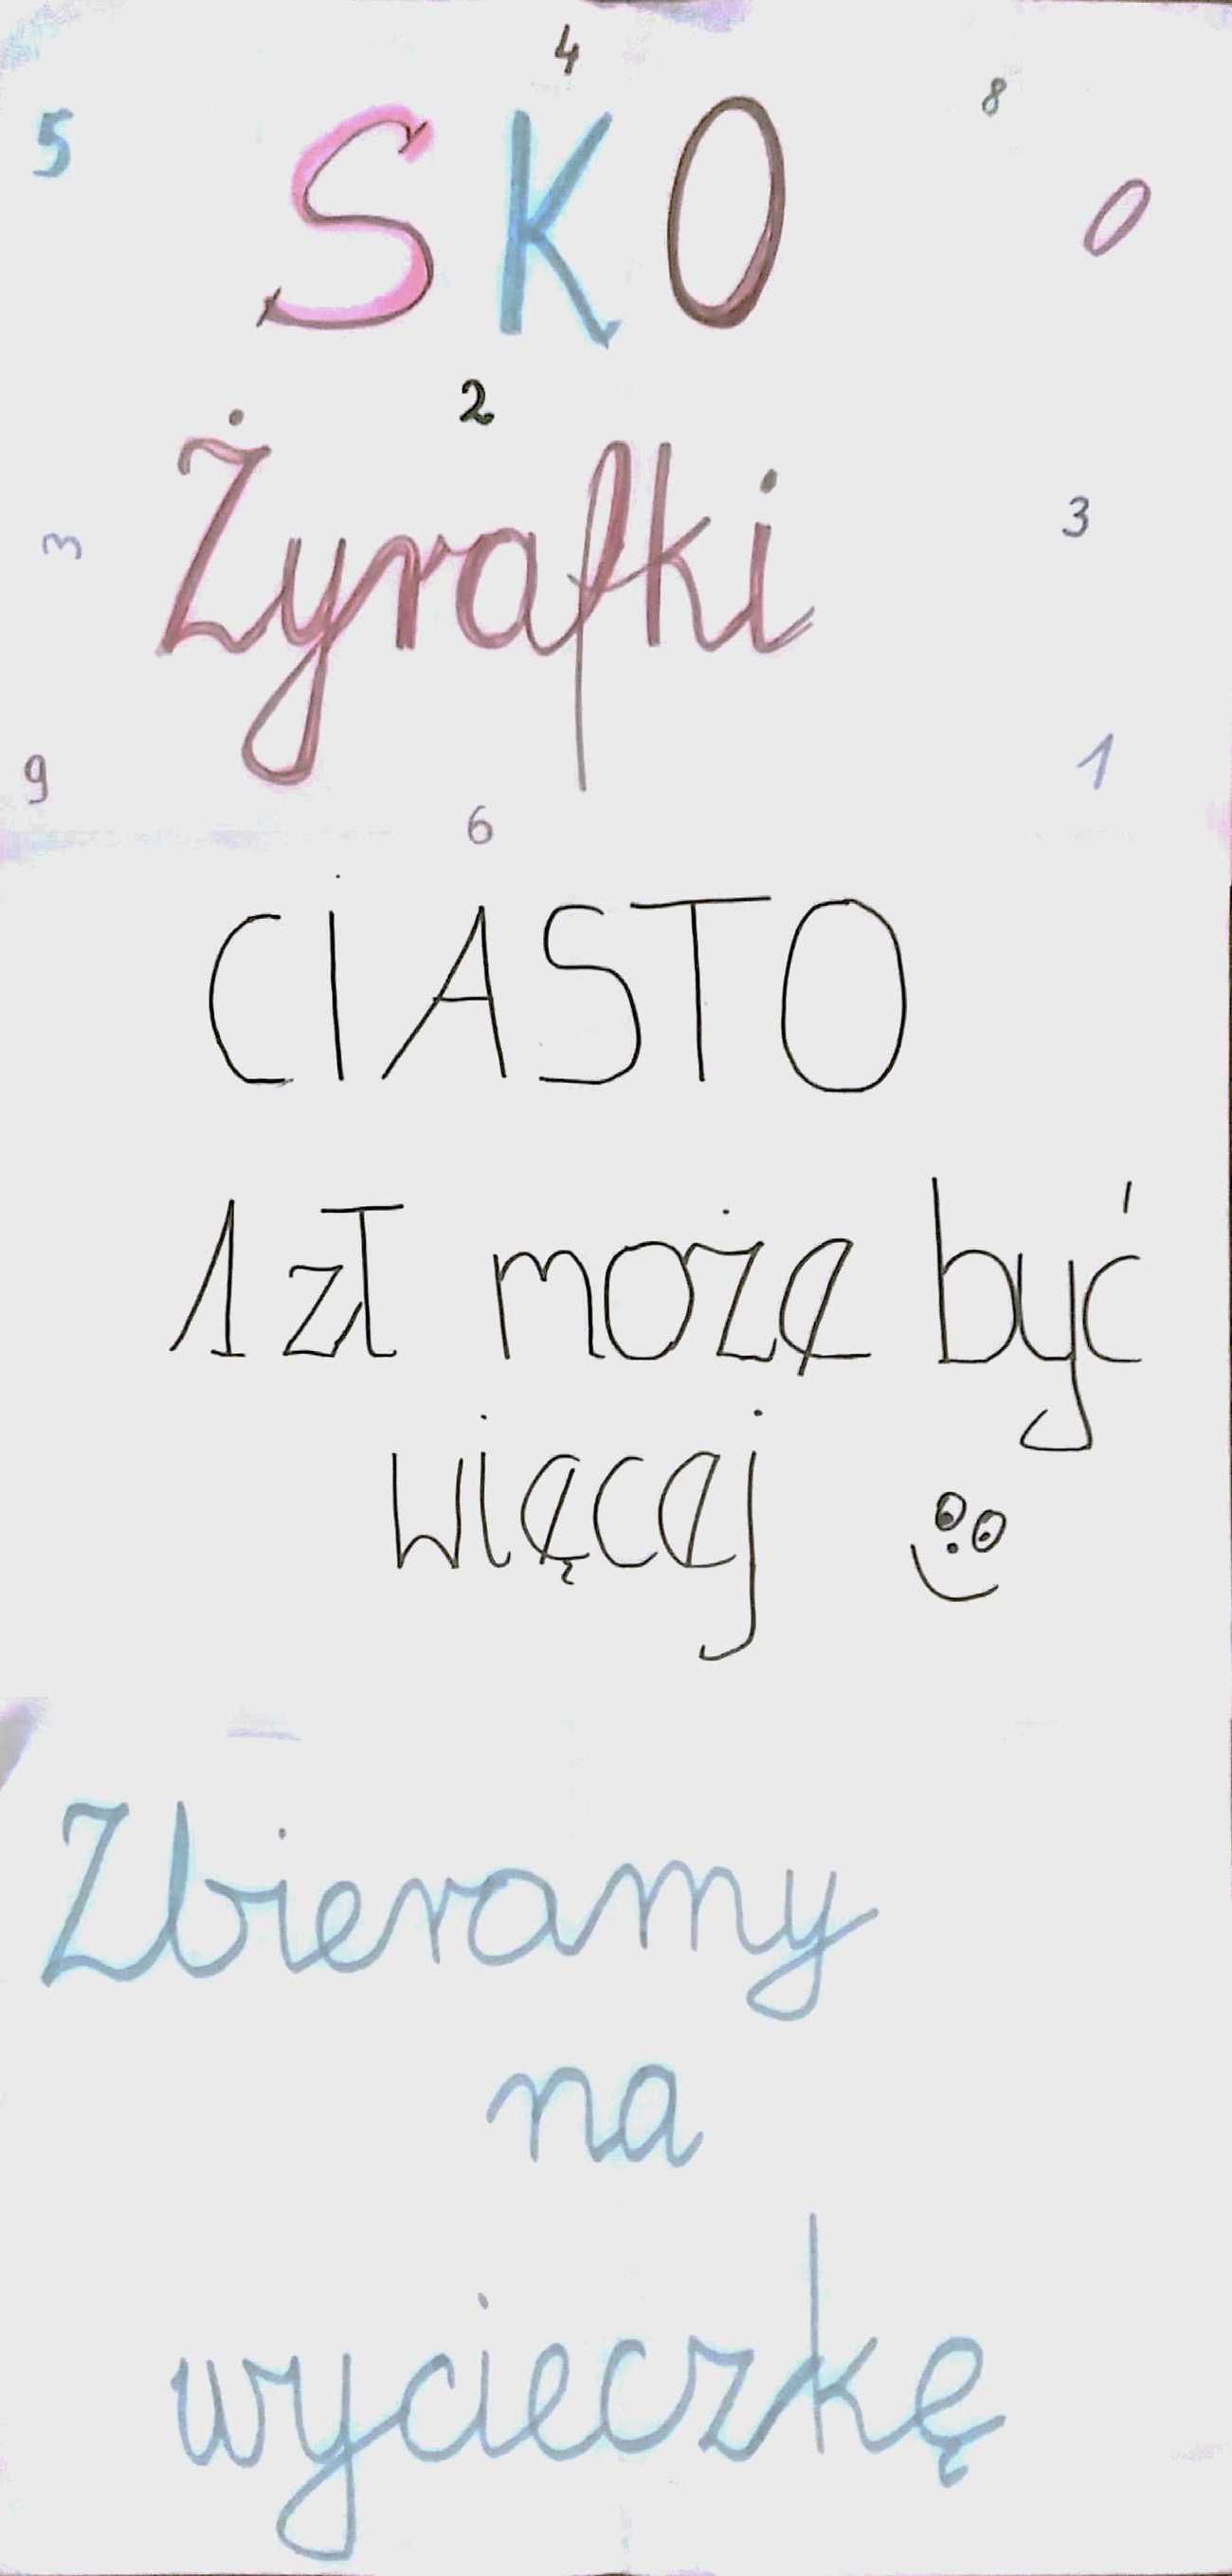 4
5 8
SKO 0
2
Żyrafki
m 3
9 1
6
CIASTO
1 zł może być
więcej
Zbieramy
na
wycieczkę